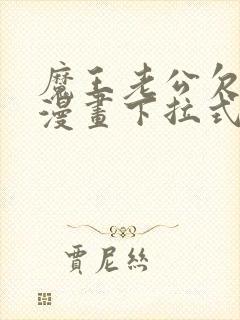 魔王老公欠
漫畫下拉式
賈尼絲